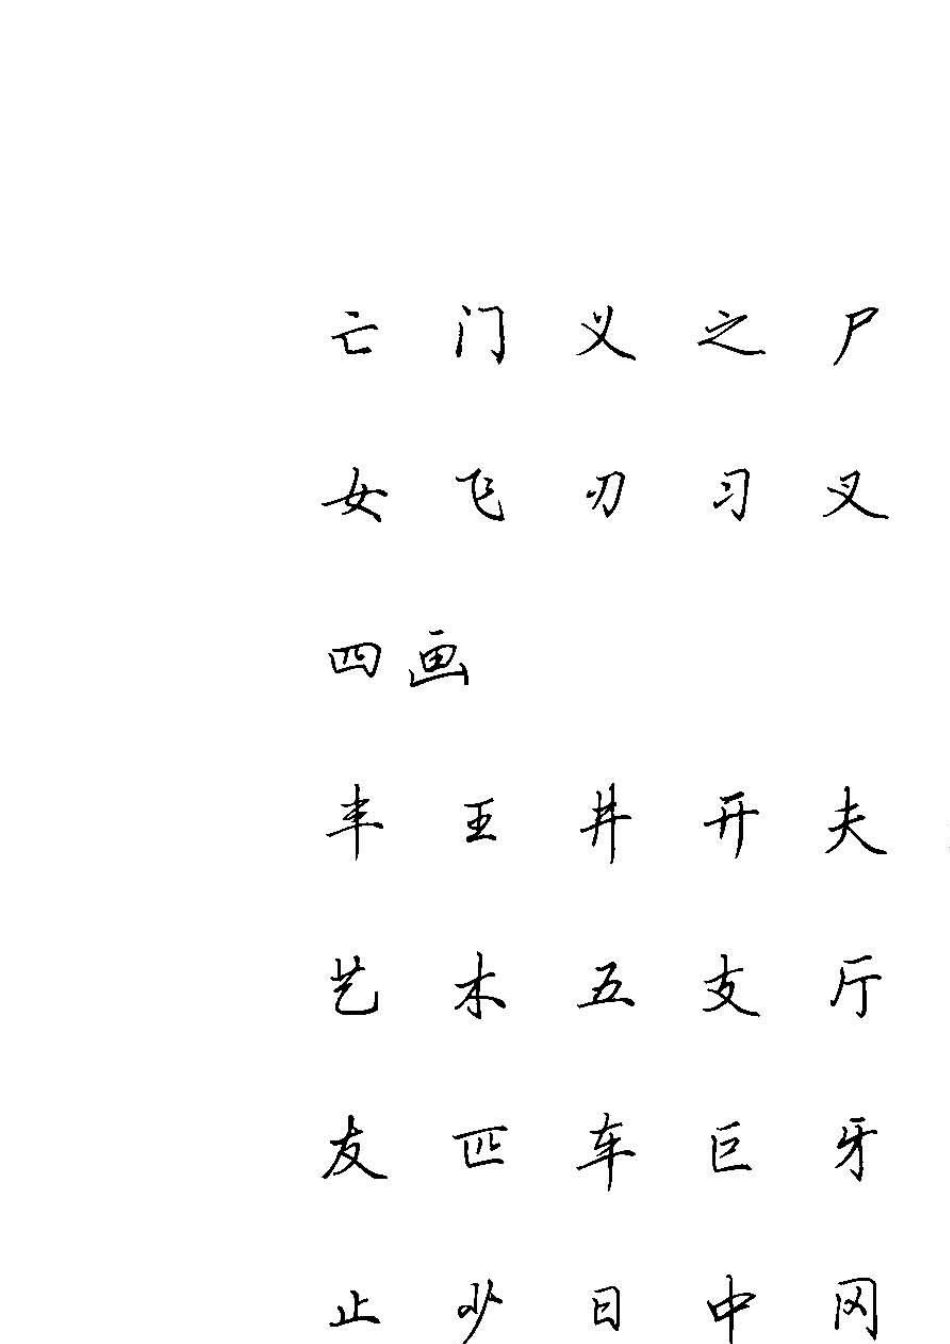 亡 门 义 之 尸
女 飞 刃 习 叉
四画
丰 王 井 开 夫
艺 木 五 支 厅
友 匹 车 巨 牙
止 少 日 中 冈